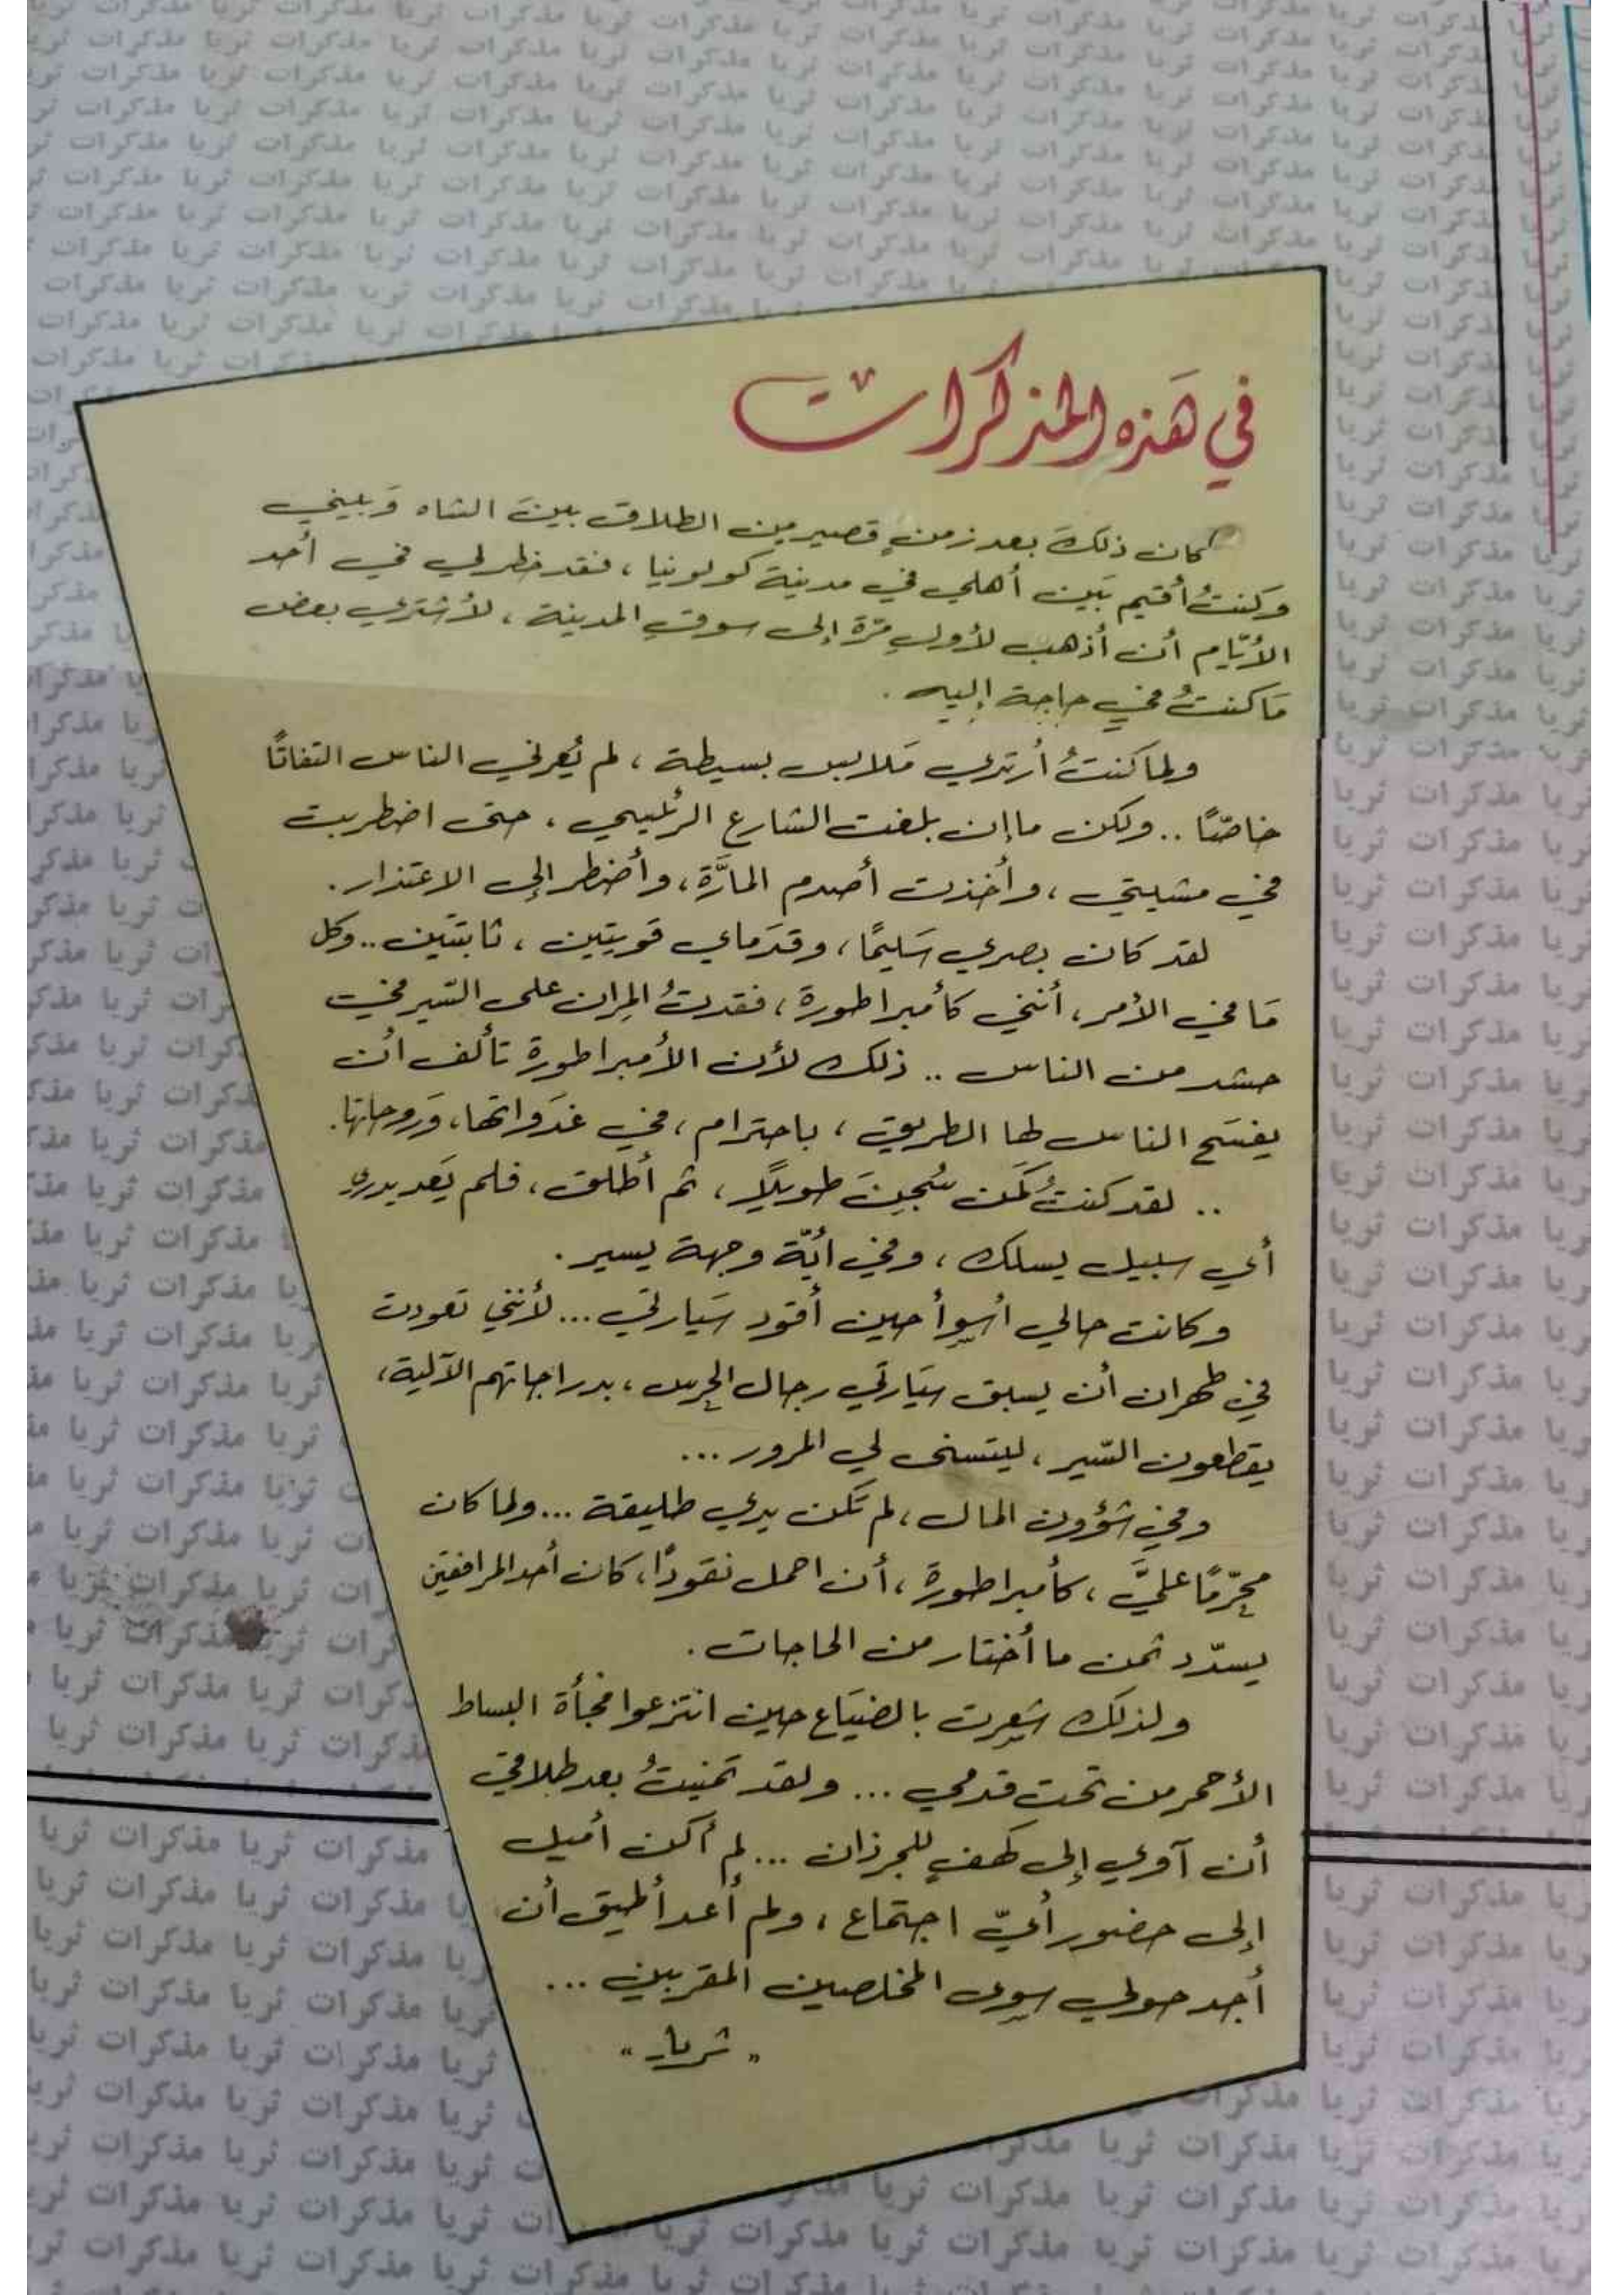 في هذه المذكرات
كان ذلك بعد زمن قصير من الطلاق بين الشاه وبيني
وكنتُ أقيم بَين أهلي في مدينة كولونيا، فقد خطر لي في أحد
الأيّام أن أذهب لأول مرّة إلى سوق المدينة، لأشتري بعض
مَا كنتُ في حاجة إليه.
ولما كنتُ أرتدي مَلابس بسيطة، لم يُعرني الناس التفاتًا
خاصّا.. ولكن ما إن بلغت الشارع الرئيسي، حتى اضطربت
في مشيتي، وأخذت أصدم المارَّة، وأضطر إلى الاعتذار.
لقد كان بصري سَليمًا، وقدَماي قويتين، ثابتتين.. وكل
مَا في الأمر، أنني كأمبراطورة، فقدتُ المِران على السَّير في
حشد من الناس.. ذلك لأن الأمبراطورة تألف أن
يفسَح الناس لها الطريق، باحترام، في غدَواتها، وَروحاتها.
.. لقد كنتُ كَمَن سُجِنَ طويلًا، ثم أطلق، فلم يَعد يدري
أي سبيل يسلك، وفي أيّة وجهة يسير.
وكانت حالي أسوأ حين أقود سَيارتي... لأنني تعودت
في طهران أن يسبق سيَارتي رجال الحرس، بدراجاتهم الآلية،
يقطعون السَّير، ليتسنى لي المرور...
وفي شؤون المال، لم تكن يدي طليقة... ولما كان
محرّمًا عليَّ، كأمبراطورة، أن احمل نقودًا، كان أحد المرافقين
يسدّد ثمن ما أختار من الحاجات.
ولذلك شعرت بالضيَاع حين انتزعوا فجأة البساط
الأحمر من تحت قدمي... ولقد تمنيتُ بعد طلاقي
أن آوي إلى كهفٍ للجرذان... لم أكن أميل
إلى حضور أيّ اجتماع، ولم أعد أطيق أن
أجد حولي سوى المخلصين المقربين...
"ثريا"